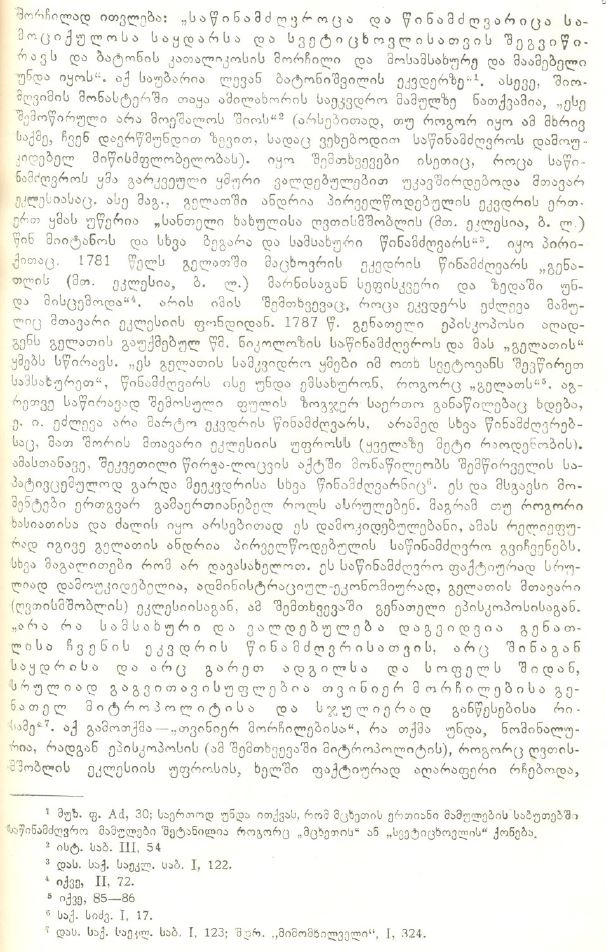 მორჩილად ითვლება: „საწინამძღვროცა და წინამძღვარიცა სა-
მოციქულოსა საყდარსა და სვეტიცხოვლისათვის შეგვიწი-
რავს და ბატონის კათალიკოსის მორჩილი და მოსამსახურე და მაამებელი
უნდა იყოს“. აქ საუბარია ლევან ბატონიშვილის ეკვდერზე“¹. ასევე, შიო-
მღვიმის მონასტერში თაყა ამილახორის საეკვდრო მამულზე ნათქვამია, „ესე
შემოწირული არა მოეშალოს შიოს“² (არსებითად, თუ როგორ იყო ამ მხრივ
საქმე, ჩვენ დავრწმუნდით ზევით, სადაც ვეხებოდით საწინამძღვროს დამოუ-
კიდებელ მიწისმფლობელობას). იყო შემთხვევები ისეთიც, როცა საწი-
ნამძღვროს ყმა გარკვეული ყმური ვალდებულებით უკავშირდებოდა მთავარ
ეკლესიასაც. ასე მაგ., გელათში ანდრია პირველწოდებულის ეკვდრის ერთ-
ერთ ყმას უწერია „სანთელი ხახულისა ღვთისმშობლის (მთ. ეკლესია, ბ. ლ.)
წინ მიიტანოს და სხვა ბეგარა და სამსახური წინამძღვარს“³. იყო პირი-
ქითაც. 1781 წელს გელათში მაცხოვრის ეკვდრის წინამძღვარს „გენა-
თლის (მთ. ეკლესია, ბ. ლ.) მარნისაგან სეფისკვერი და ზედაში უნ-
და მისცემოდა“⁴. არის იმის შემთხვევაც, როცა ეკვდერს ეძლევა მამუ-
ლიც მთავარი ეკლესიის ფონდიდან. 1787 წ. გენათელი ეპისკოპოსი აღად-
გენს გელათის გაუქმებულ წმ. ნიკოლოზის საწინამძღვროს და მას „გელათის“
ყმებს სწირავს. „ეს გელათის სამკვიდრო ყმები იმ ოთხ სვეტოვანს შევწირეთ
სამსახურეთ“, წინამძღვარს ისე უნდა ემსახურონ, როგორც „გელათს“⁵. აგ-
რეთვე საწირავად შემოსული ფულის ზოგჯერ საერთო განაწილებაც ხდება,
ე. ი. ეძლევა არა მარტო ეკვდრის წინამძღვარს, არამედ სხვა წინამძღვრებ-
საც, მათ შორის მთავარი ეკლესიის უფროსს (ყველაზე მეტი რაოდენობის).
ამასთანავე, შეკვეთილი წირვა-ლოცვის აქტში მონაწილეობს შემწირველის სა-
პატივცემულოდ გარდა მეეკვდრისა სხვა წინამძღვარნიც⁶. ეს და მსგავსი მო-
მენტები ერთგვარ გამაერთიანებელ როლს ასრულებენ. მაგრამ თუ როგორი
ხასიათისა და ძალის იყო არსებითად ეს დამოკიდებულებანი, ამას რელიეფუ-
რად იგივე გელათის ანდრია პირველწოდებულის საწინამძღვრო გვიჩვენებს.
სხვა მაგალითები რომ არ დავასახელოთ. ეს საწინამძღვრო ფაქტიურად სრუ-
ლიად დამოუკიდებელია, ადმინისტრაციულ-ეკონომიურად, გელათის მთავარი
(ღვთისმშობლის) ეკლესიისაგან, ამ შემთხვევაში გენათელი ეპისკოპოსისაგან.
„არა რა სამსახური და ვალდებულება დაგვიდვია გენათ-
ლისა ჩვენის ეკვდრის წინამძღვრისათვის, არც შინაგან
საყდრისა და არც გარეთ ადგილსა და სოფელს შიდან,
სრულიად გაგვითავისუფლებია თვინიერ მორჩილებისა გე-
ნათელ მიტროპოლიტისა და სჯულიერად განწესებისა რი-
სამე“⁷. აქ გამოთქმა — „თვინიერ მორჩილებისა“, რა თქმა უნდა, ნომინალუ-
რია, რადგან ეპისკოპოსის (ამ შემთხვევაში მიტროპოლიტის), როგორც ღვთის-
მშობლის ეკლესიის უფროსის, ხელში ფაქტიურად აღარაფერი რჩებოდა,
¹ მუზ. ფ. Ad, 30; საერთოდ უნდა ითქვას, რომ მცხეთის ერთიანი მამულების საბუთებში
საწინამძღვრო მამულები შეტანილია როგორც „მცხეთის“ ან „სვეტიცხოვლის“ ქონება.
² ისტ. საბ. III, 54
³ დას. საქ. საეკლ. საბ. I, 122.
⁴ იქვე, II, 72.
⁵ იქვე, 85—86
⁶ საქ. სიძვ. I, 17.
⁷ დას. საქ. საეკლ. საბ. I, 123; შდრ. „მიმომხილველი“, I, 324.